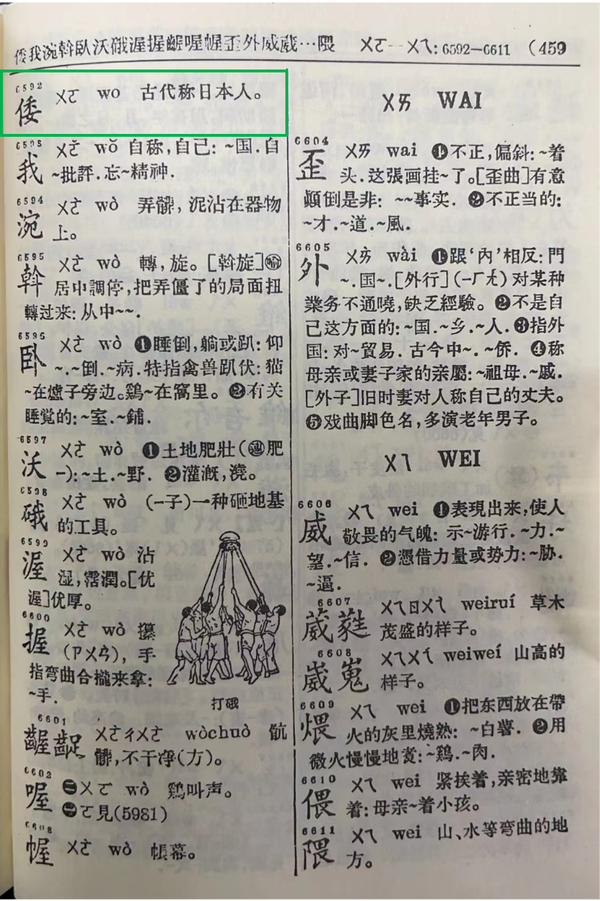 倭我涴斡臥沃硪渥握龌喔幄歪外威葳…隈 ㄨㄛ—ㄨㄟ: 6592—6611 (459
6592
倭 ㄨㄛ wo 古代称日本人。
我 ㄨㄛˇ wǒ 自称，自己: ~国. 自
~批評. 忘~精神.
6594
涴 ㄨㄛˋ wò 弄髒，泥沾在器物
上。
6595
斡 ㄨㄛˋ wò 轉，旋。[斡旋]
居中調停，把弄僵了的局面扭
轉过来: 从中~~.
卧 ㄨㄛˋ wò ❶睡倒，躺或趴: 仰
~.~倒.~病. 特指禽兽趴伏: 猫
~在爐子旁边。鷄~在窩里。❷有关
睡觉的: ~室.~鋪.
6597
沃 ㄨㄛˋ wò ❶土地肥壯(肥
—): ~土.~野. ❷灌溉，澆。
6598
硪 ㄨㄛˋ wò (—子)一种砸地基
的工具。
6599
渥 ㄨㄛˋ wò 沾
湿，霑潤。[优
渥]优厚。
6600
握 ㄨㄛˋ wò 攥
(ㄗㄨㄢˋ)，手
指弯曲合攏来拿:
~手.
打硪
6601
齷齪 ㄨㄛˋㄔㄨㄛˋ wòchuò 骯
髒，不干净(方)。
6602
喔 ㊀ㄨㄛˋ wò 鷄叫声。
㊁ㄛ見(5981)
幄 ㄨㄛˋ wò 帳幕。
ㄨㄞ WAI
6604
歪 ㄨㄞ wai ❶不正，偏斜: ~着
头. 这張画挂~了。[歪曲]有意
顚倒是非: ~~事实. ❷不正当的:
~才.~道.~風.
6605
外 ㄨㄞˋ wài ❶跟‘內’相反: 門
~.国~.[外行](—ㄏㄤˊ)对某种
業务不通曉，缺乏經驗。❷不是自
己这方面的: ~国.~乡.~人. ❸指外
国: 对~貿易. 古今中~.~侨. ❹称
母亲或妻子家的亲屬: ~祖母.~戚.
[外子]旧时妻对人称自己的丈夫。
❺戏曲脚色名，多演老年男子。
ㄨㄟ WEI
6606
威 ㄨㄟ wei ❶表現出来，使人
敬畏的气魄: 示~游行.~力.~
望.~信. ❷憑借力量或势力: ~胁.
~逼.
6607
葳蕤 ㄨㄟㄖㄨㄟˊ weiruí 草木
茂盛的样子。
6608
崴嵬 ㄨㄟㄨㄟˊ weiweí 山高的
样子。
6609
煨 ㄨㄟ wei ❶把东西放在帶
火的灰里燒熟: ~白薯. ❷用
微火慢慢地煮: ~鷄.~肉.
6610
偎 ㄨㄟ wei 紧挨着，亲密地靠
着: 母亲~着小孩。
6611
隈 ㄨㄟ wei 山、水等弯曲的地
方。